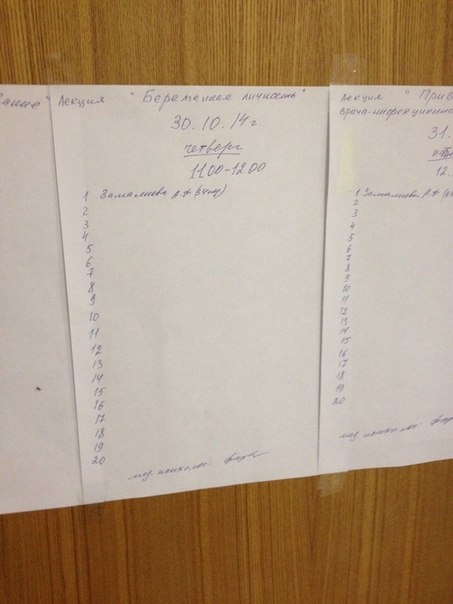 Лекция "Беременная личность"
30.10.14г
четверг
11.00-12.00
1 Замалиева
2
3
4
5
6
7
8
9
10
11
12
13
14
15
16
17
18
19
20
мед. психолог:
Лекция "Прив
врача-инфекциониста
31.
12.
1 Замалиева
2
3
4
5
6
7
8
9
10
11
12
13
14
15
16
17
18
19
20
мед. психолог: